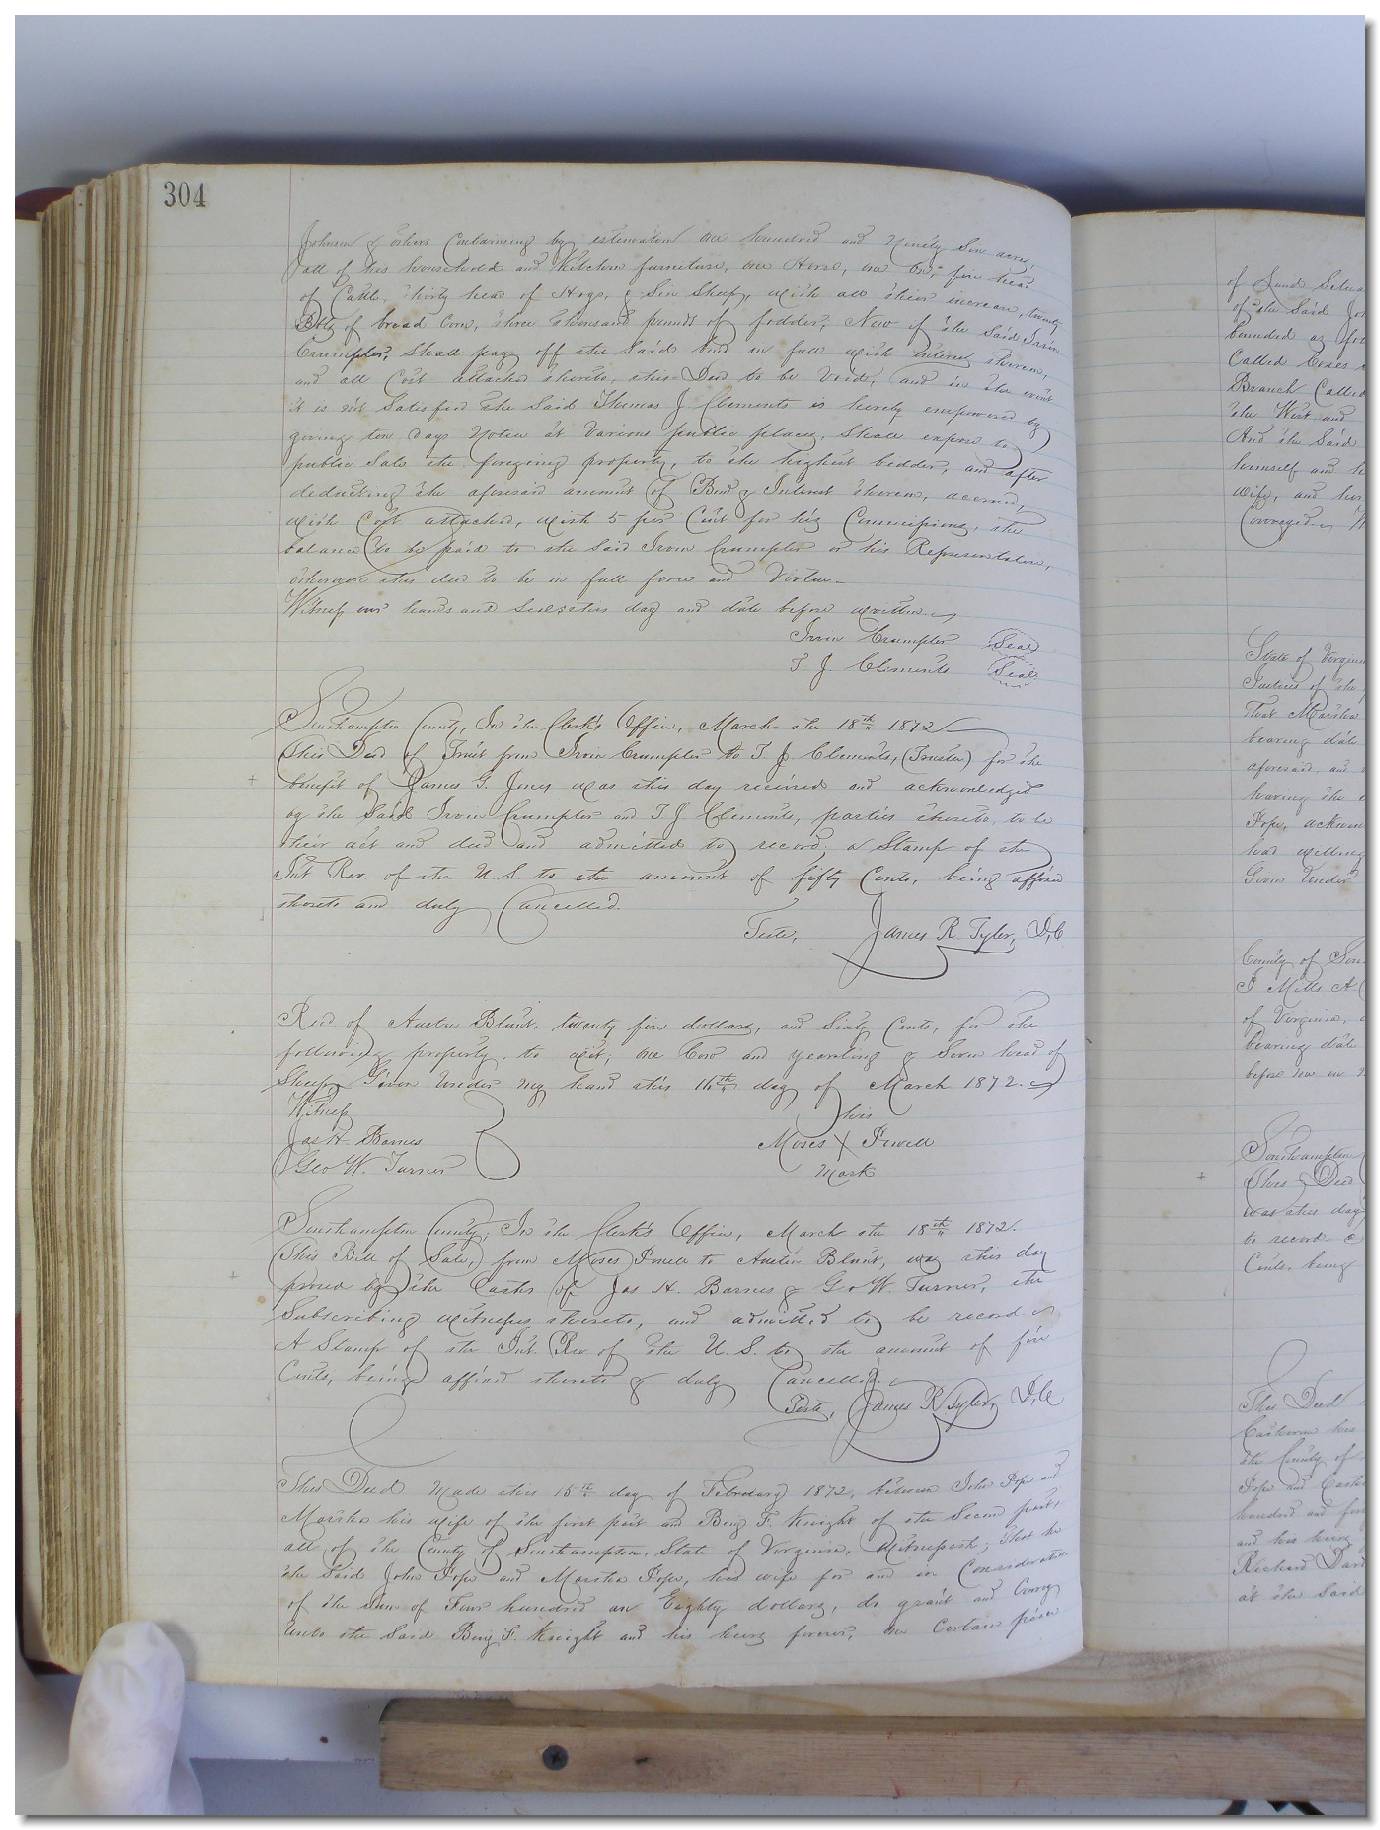 304
Johnson & others Containing by estimation one hundred and Ninety Six acres,
all of his household and Kitchen furniture, one Horse, one Ox, five head
of Cattle, thirty head of Hogs, & Six Sheep, with all their increase, twenty
Bbls of bread Corn, three thousand pounds of fodder; Now if the Said Irvin
Crumpler, Shall pay off the Said bond in full with interest thereon,
and all Cost attached thereto, this Deed to be Void, and in the event
it is not Satisfied the Said Thomas J Clements is hereby empowered by
giving ten days Notice at Various public places, Shall expose to
public Sale the foregoing property, to the highest bidder, and after
deducting the aforesaid amount of Bond & Interest thereon, accrued,
with Cost attached, with 5 per Cent for his Commissions, the
balance to be paid to the Said Irvin Crumpler or his Representative,
otherwise this deed to be in full force and Virtue
Witness our hands and Seals this day and date before written
Irvin Crumpler Seal
T J Clements Seal
Southampton County, In the Clerk's Office, March the 18th 1872
This Deed of Trust from Irvin Crumpler to T J Clements, (Trustee) for the
benefit of James G. Jones was this day received and acknowledged
by the Said Irvin Crumpler and T J Clements, parties thereto, to be
their act and deed and admitted to record, a Stamp of the
Int Rev. of the U.S. to the amount of fifty Cents, being affixed
thereto and duly Cancelled.
Teste, James R. Tyler, D,C
Recd of Austin Blunt. twenty five dollars, and Sixty Cents, for the
following property. to wit; one Cow and yearling & Seven head of
Sheep, Given Under my hand this 16th day of March 1872.
Witness his
Jas H. Barnes Moses X Powell
Geo W. Turner mark
Southampton County, In the Clerk's Office, March the 18th 1872.
This Bill of Sale, from Moses Powell to Austin Blunt, was this day
proved by the Oaths of Jas H. Barnes & Geo W. Turner, the
Subscribing witnesses thereto, and admitted to be record
A Stamp of the Int. Rev of the U.S. to the amount of five
Cents, being affixed thereto & duly Cancelled.
Teste, James R Tyler, D,C
This Deed made this 15th day of February 1872, between John Pope and
Marsha his wife of the first part and Benj F. Knight of the Second part,
all of the County of Southampton, State of Virginia, Witnesseth; that he
the Said John Pope and Marsha Pope, his wife for and in Consideration
of the sum of Four hundred an Eighty dollars, do grant and Convey
unto the Said Benj F. Knight and his heirs forever, one Certain piece
of Land
of the Said
bounded as
Called
Branch Called
the West and
And the Said
himself and
wife, and
State of
Justices of the
that Marsha
bearing date
aforesaid, and
having the
Pope,
had
Given Under
County of
I Mills A
of Virginia,
bearing date
before me in
Southampton
This Deed
was this day
to record
Cents. being
This Deed
his
the County of
Pope and
hundred and
and his heirs
Richard
at the Said